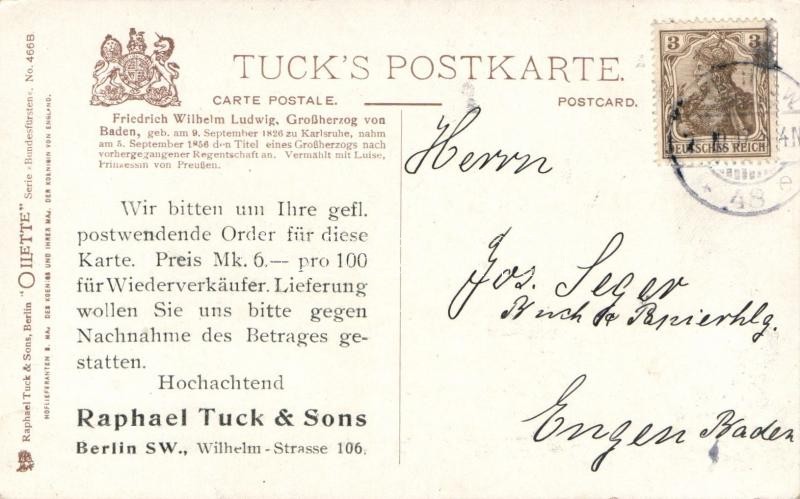 TUCK'S POSTKARTE.
CARTE POSTALE.
POSTCARD.
Friedrich Wilhelm Ludwig, Großherzog von
Baden, geb. am 9. September 1826 zu Karlsruhe, nahm
am 5. September 1856 den Titel eines Großherzogs nach
vorhergegangener Regentschaft an. Vermählt mit Luise,
Prinzessin von Preußen.
Wir bitten um Ihre gefl.
postwendende Order für diese
Karte. Preis Mk. 6.— pro 100
für Wiederverkäufer. Lieferung
wollen Sie uns bitte gegen
Nachnahme des Betrages ge-
statten.
Hochachtend
Raphael Tuck & Sons
Berlin SW., Wilhelm-Strasse 106.
Raphael Tuck & Sons, Berlin "OILETTE" Serie »Bundesfürsten«. No. 466B
HOFLIEFERANTEN S. MAJ. DES KOENIGS UND IHRER MAJ. DER KOENIGIN VON ENGLAND.
3 3
DEUTSCHES REICH
48 e
Herrn
Jos. Seger
Buch & Papierhlg.
Engen Baden